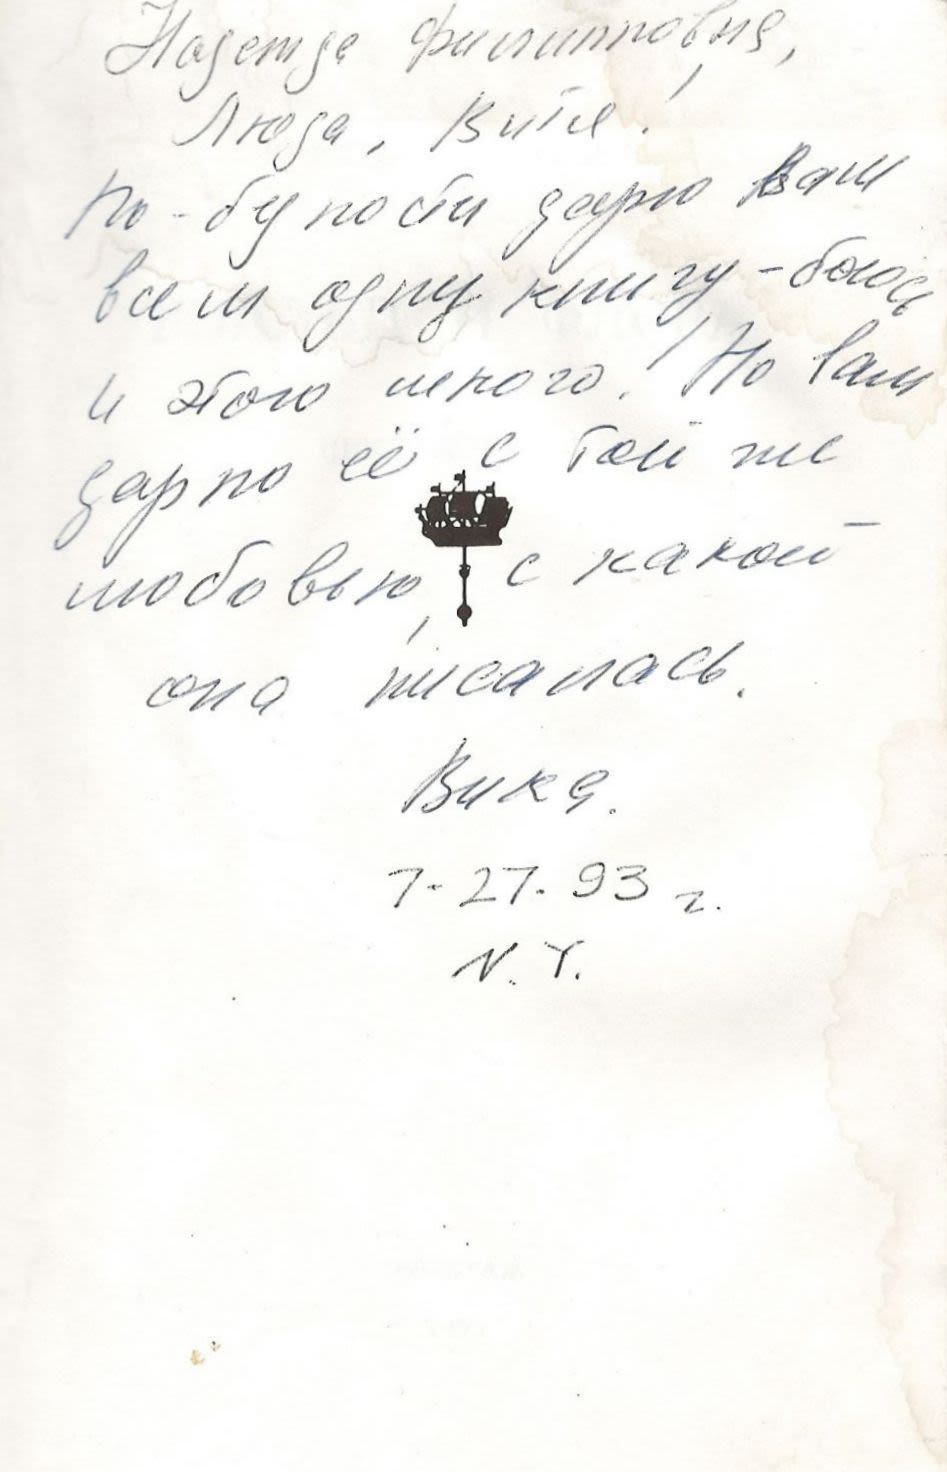 Надежда Филипповна,
Люда, Витя!
По-глупости дарю Вам
всем одну книгу - боюсь
и этого много! Но вам
дарю её с той же
любовью, с какой
она писалась.
Вика.
7-27-93 г.
N.Y.